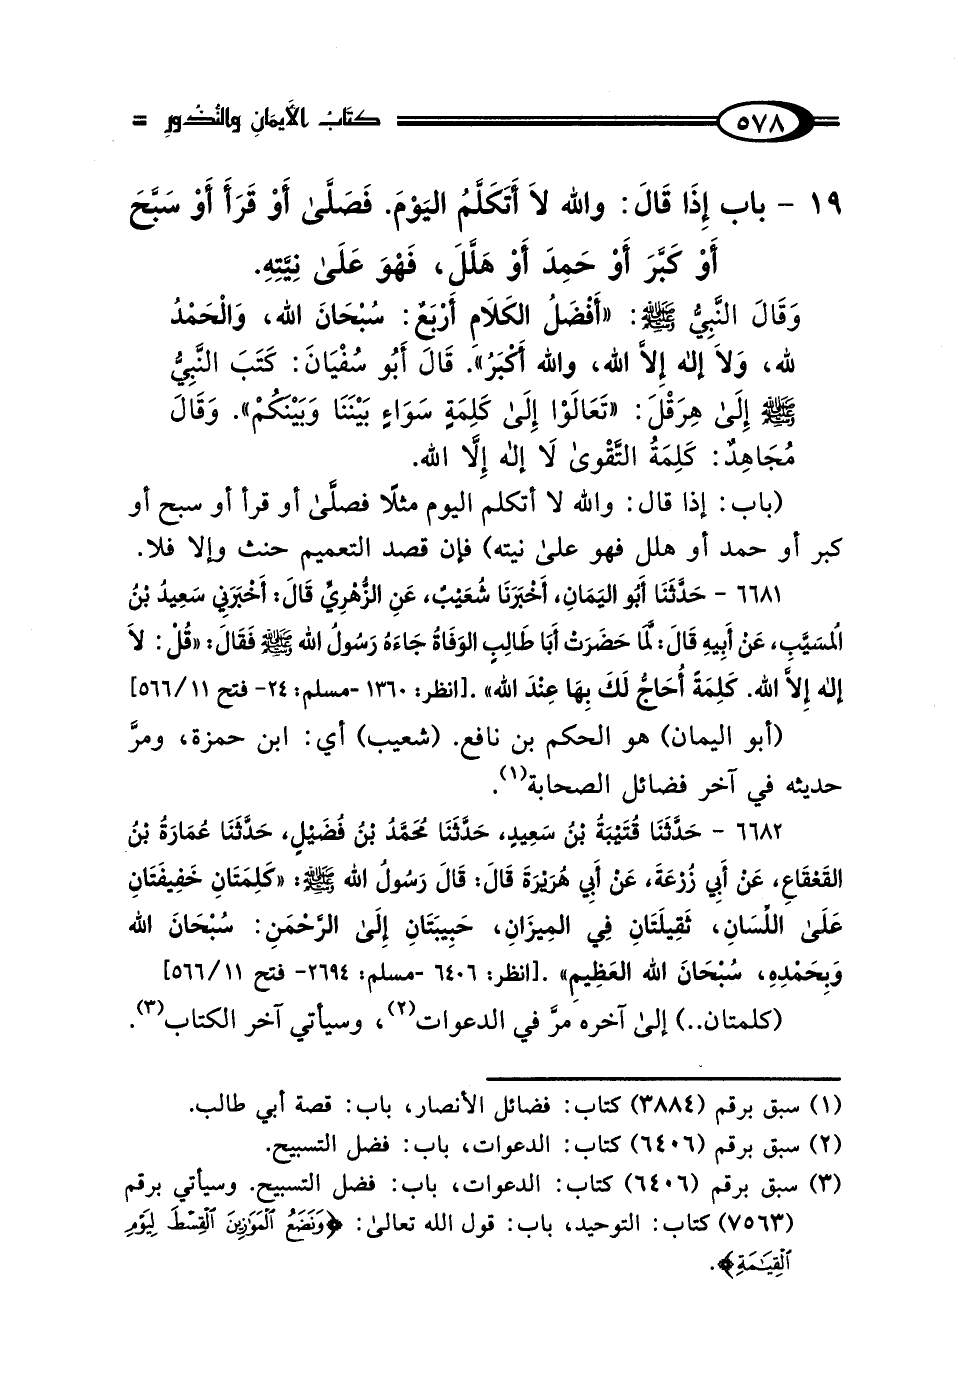 ٥٧٨ كتاب الأيمان والنذور =
١٩ - باب إِذَا قَالَ: والله لاَ أَتَكَلَّمُ اليَوْمَ. فَصَلَّىٰ أَوْ قَرَأَ أَوْ سَبَّحَ
أَوْ كَبَّرَ أَوْ حَمِدَ أَوْ هَلَّلَ، فَهْوَ عَلَىٰ نِيَّتِهِ.
وَقَالَ النَّبِيُّ ﷺ: «أَفْضَلُ الكَلَامِ أَرْبَعٌ: سُبْحَانَ الله، وَالْحَمْدُ
لله، وَلاَ إله إِلاَّ الله، والله أَكْبَرُ». قَالَ أَبُو سُفْيَانَ: كَتَبَ النَّبِيُّ
ﷺ إِلَىٰ هِرَقْلَ: «تَعَالَوْا إِلَىٰ كَلِمَةٍ سَوَاءٍ بَيْنَنَا وَبَيْنَكُمْ». وَقَالَ
مُجَاهِدٌ: كَلِمَةُ التَّقْوىٰ لَا إلٰه إِلَّا الله.
(باب: إذا قال: والله لا أتكلم اليوم مثلًا فصلَّىٰ أو قرأ أو سبح أو
كبر أو حمد أو هلل فهو علىٰ نيته) فإن قصد التعميم حنث وإلا فلا.
٦٦٨١ - حَدَّثَنَا أَبُو اليَمَانِ، أَخْبَرَنَا شُعَيْبٌ، عَنِ الزُّهْرِيِّ قَالَ: أَخْبَرَنِي سَعِيدُ بْنُ
المُسَيَّبِ، عَنْ أَبِيهِ قَالَ: لَمَّا حَضَرَتْ أَبَا طَالِبٍ الوَفَاةُ جَاءَهُ رَسُولُ الله ﷺ فَقَالَ: «قُلْ: لاَ
إله إِلاَّ الله. كَلِمَةً أُحَاجُّ لَكَ بِهَا عِنْدَ الله» .[انظر: ١٣٦٠ -مسلم: ٢٤- فتح ١١/٥٦٦]
(أبو اليمان) هو الحكم بن نافع. (شعيب) أي: ابن حمزة، ومرَّ
حديثه في آخر فضائل الصحابة(١).
٦٦٨٢ - حَدَّثَنَا قُتَيْبَةُ بْنُ سَعِيدٍ، حَدَّثَنَا مُحَمَّدُ بْنُ فُضَيْلٍ، حَدَّثَنَا عُمَارَةُ بْنُ
القَعْقَاعِ، عَنْ أَبِي زُرْعَةَ، عَنْ أَبِي هُرَيْرَةَ قَالَ: قَالَ رَسُولُ الله ﷺ: «كَلِمَتَانِ خَفِيفَتَانِ
عَلَىٰ اللِّسَانِ، ثَقِيلَتَانِ فِي المِيزَانِ، حَبِيبَتَانِ إِلَىٰ الرَّحْمَنِ: سُبْحَانَ الله
وَبِحَمْدِهِ، سُبْحَانَ الله العَظِيمِ» .[انظر: ٦٤٠٦ -مسلم: ٢٦٩٤- فتح ١١/٥٦٦]
(كلمتان..) إلىٰ آخره مرَّ في الدعوات(٢)، وسيأتي آخر الكتاب(٣).
(١) سبق برقم (٣٨٨٤) كتاب: فضائل الأنصار، باب: قصة أبي طالب.
(٢) سبق برقم (٦٤٠٦) كتاب: الدعوات، باب: فضل التسبيح.
(٣) سبق برقم (٦٤٠٦) كتاب: الدعوات، باب: فضل التسبيح. وسيأتي برقم
(٧٥٦٣) كتاب: التوحيد، باب: قول الله تعالىٰ: ﴿وَنَضَعُ ٱلْمَوَٰزِينَ ٱلْقِسْطَ لِيَوْمِ
ٱلْقِيَـٰمَةِ﴾.